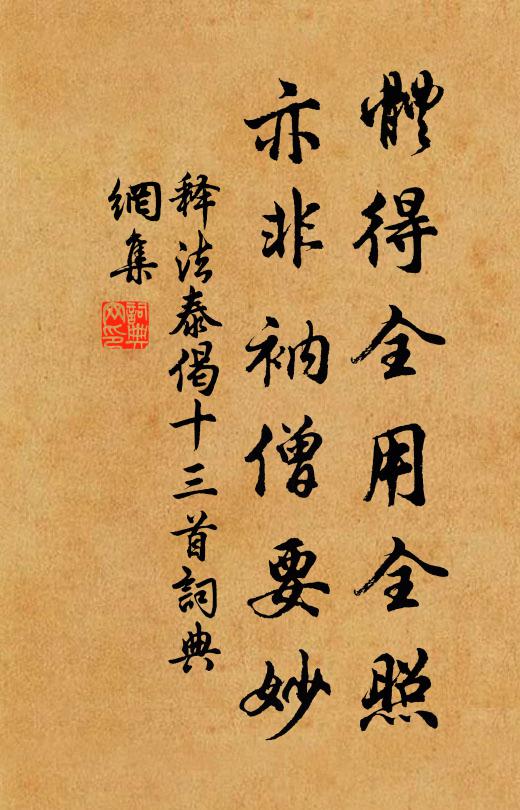 體得全用全照
亦非衲僧要妙
释法泰偈十三首詞典
網集
詞典